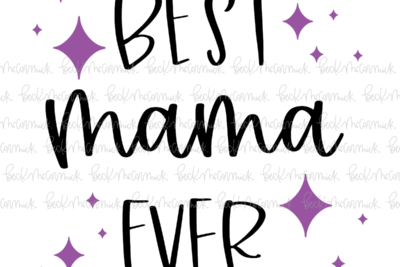 BEST
mama
EVER